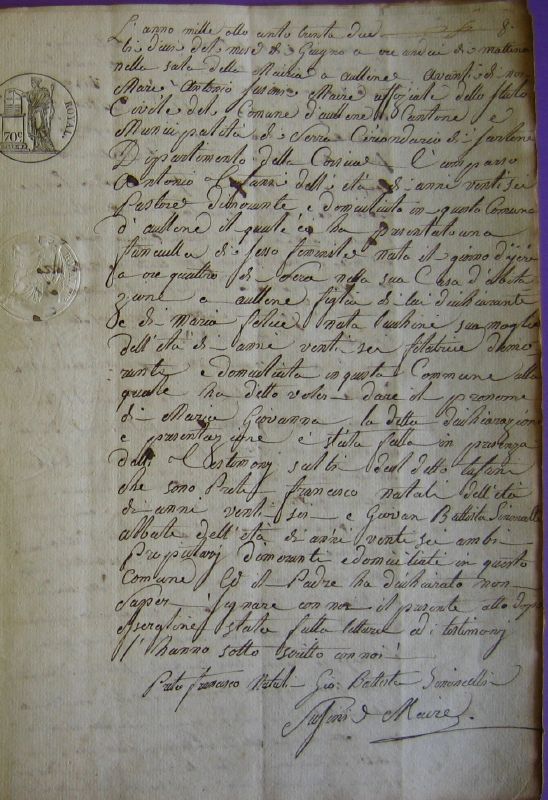 L'anno mille otto cento trenta due
li dieci del mese di Giugno a ore undici di mattina
nella sala della Mairia a aullene avanti di noi
Mare Antonio Susini Maire uffiziale dello Stato
Civile del Comune d'aullene Cantone e
Municipalita di Serra Circondario di Sartene
Dipartimento della Corsica è comparso
Antonio dell'età di anni venti sei
Pastore dimorante e domiciliato in questo Comune
d'aullene il quale ci ha presentato una
fanciulla di sesso feminile nata il giorno d'jeri
a ore quattro di sera nella sua Casa d'abita
zione a aullene figlia di lui dichiarante
e di Maria felice nata sua moglie
dell'età di anni venti sei filatrice dimo
rante e domiciliata in questo Commune alla
quale ha detto voler dare il pronome
di Maria Giovanna la detta dichiarazione
e presentazione è stata fatta in presenza
delli Testimonj scelti dal detto
che sono Prete francesco natali dell'età
di anni venti sei e Giovan Battista Simoncelli
abbate dell'età di anni venti sei ambi
Proprietarj dimoranti e domiciliati in questo
Comune Ed il Padre ha dichiarato non
saper signare con noi il presente atto dopo
essergline stata fatta lettura ed i testimonj
l'hanno sotto scritto con noi
Prete francesco Natali Gio: Battista Simoncelli
Susini Maire
70c
ROYAL